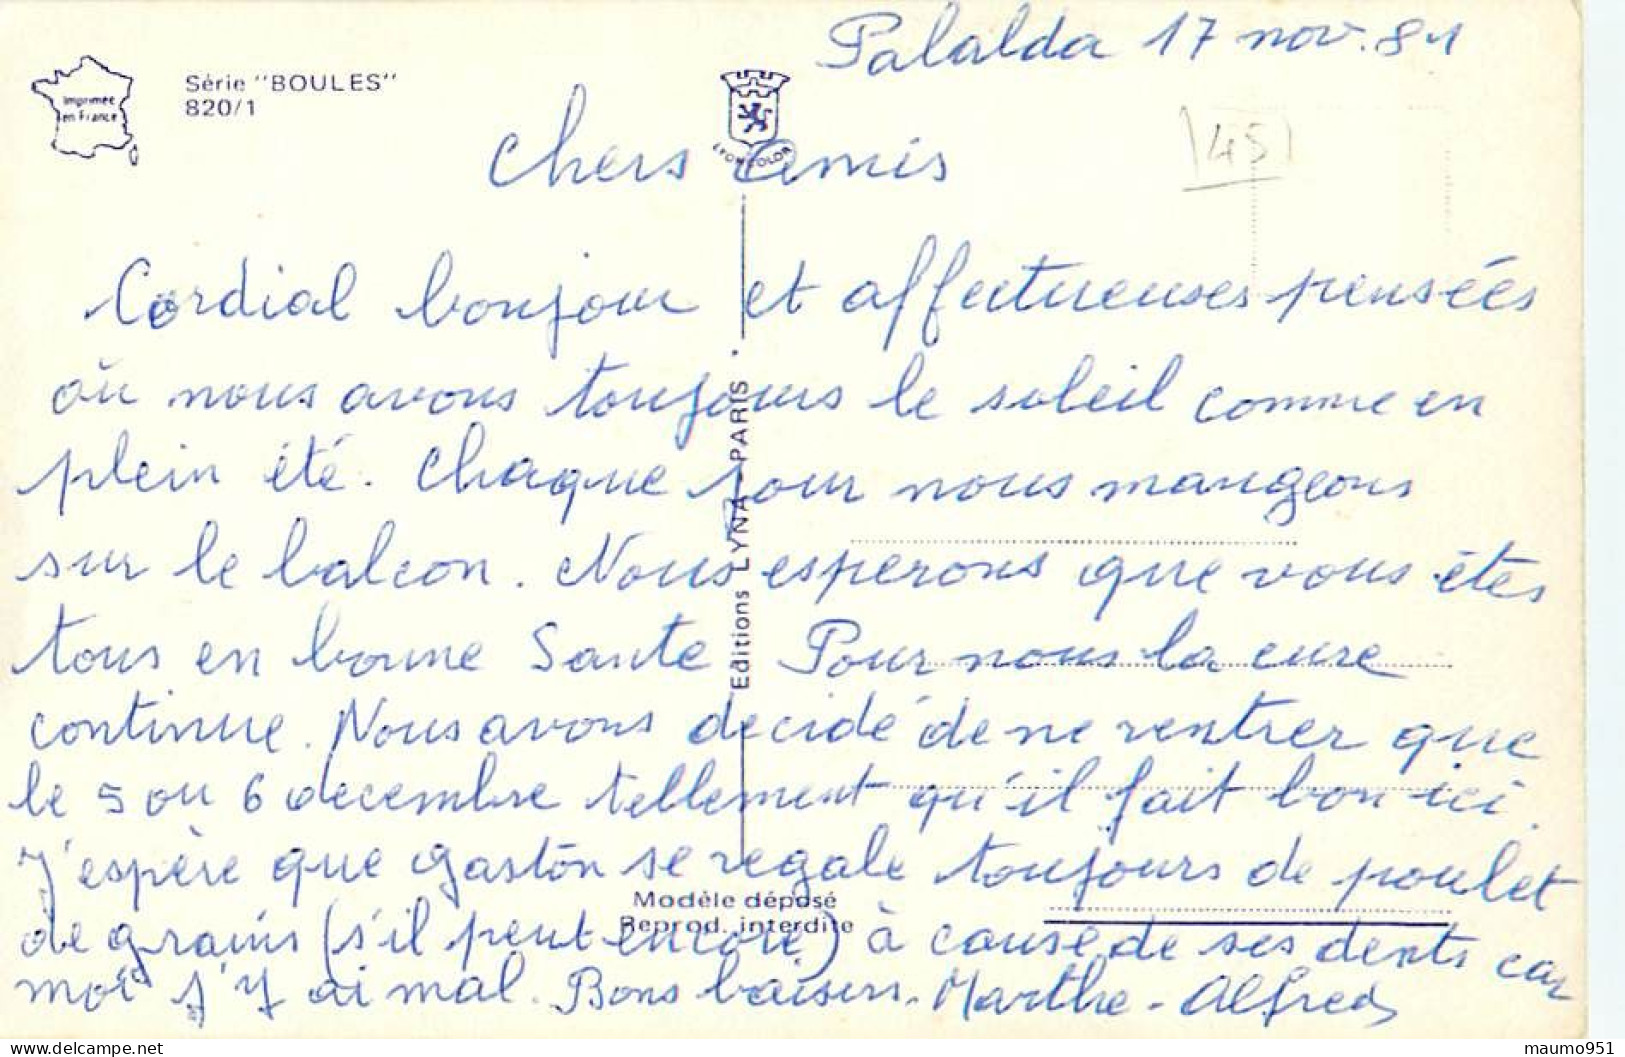 Palalda 17 nov. 81
Imprimée
en France
Série "BOULES"
820/1
LYON COLOR
45
Chers amis
Cordial bonjour et affectueuses pensées
où nous avons toujours le soleil comme en
plein été. Chaque jour nous mangeons
sur le balcon. Nous esperons que vous êtes
tous en bonne Sante Pour nous la cure
continue. Nous avons decidé de ne rentrer que
le 5 ou 6 decembre tellement qu'il fait bon ici.
J'espère que Gaston se regale toujours de poulet
de grains (s'il peut encore) à cause de ses dents car
moi j'y ai mal. Bons baisers. Marthe - Alfred
Editions LYNA - PARIS
Modèle déposé
Reprod. interdite
maumo951